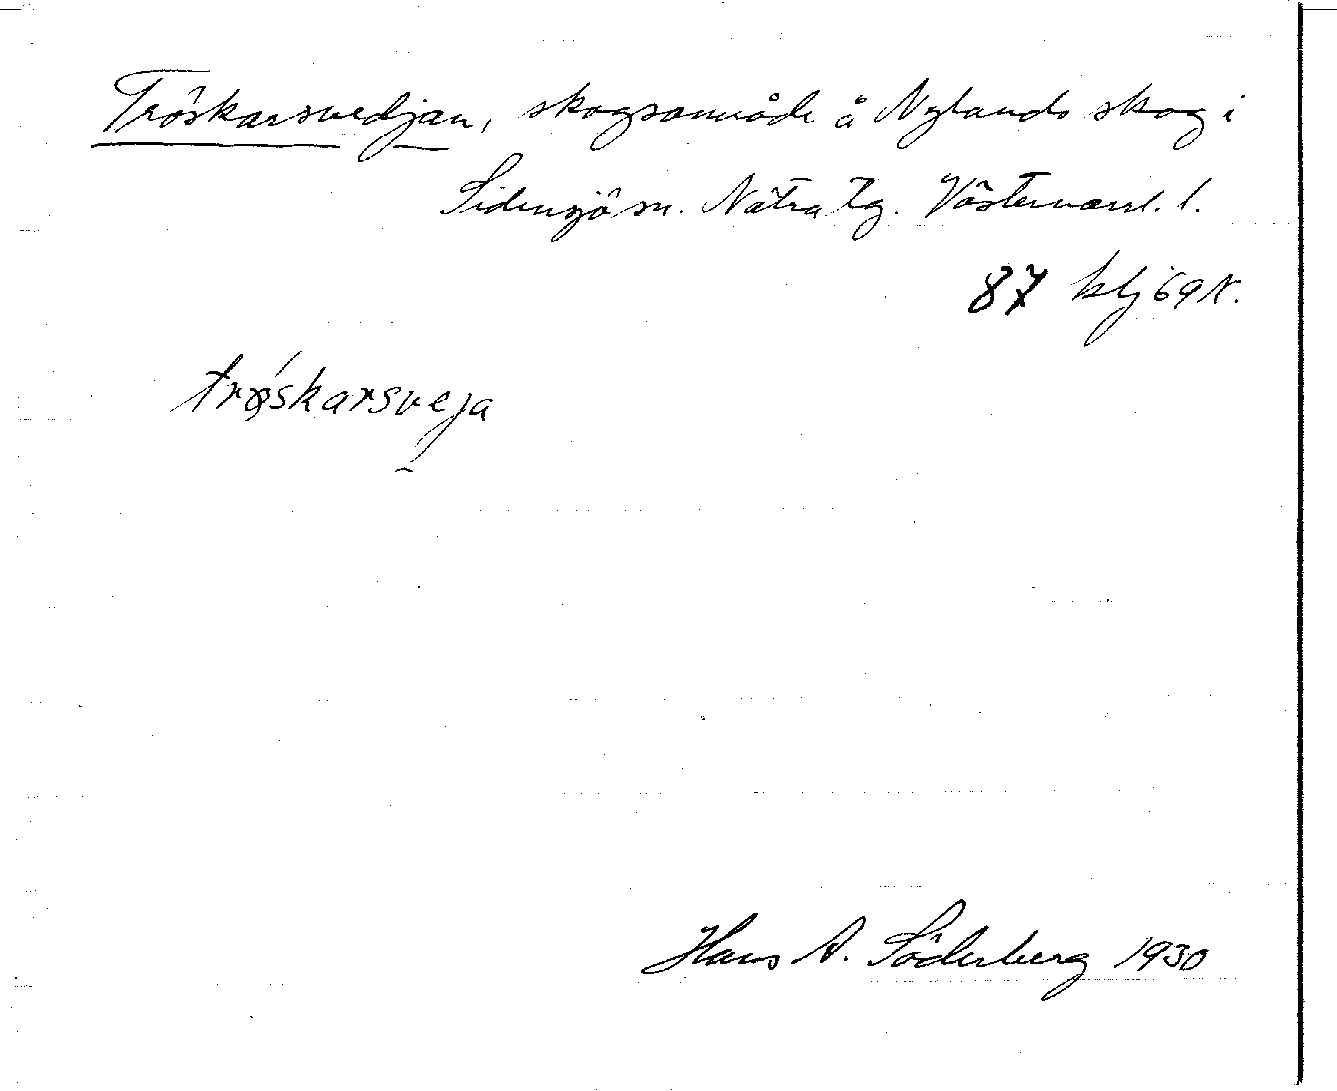 Tröskarsvedjan, skogsområde å Nylands skog i
Sidensjö sn. Nätra tg. Västernorrl. l.
87 blj 69 N.
trø´skarsveja
Hans A. Söderberg 1930